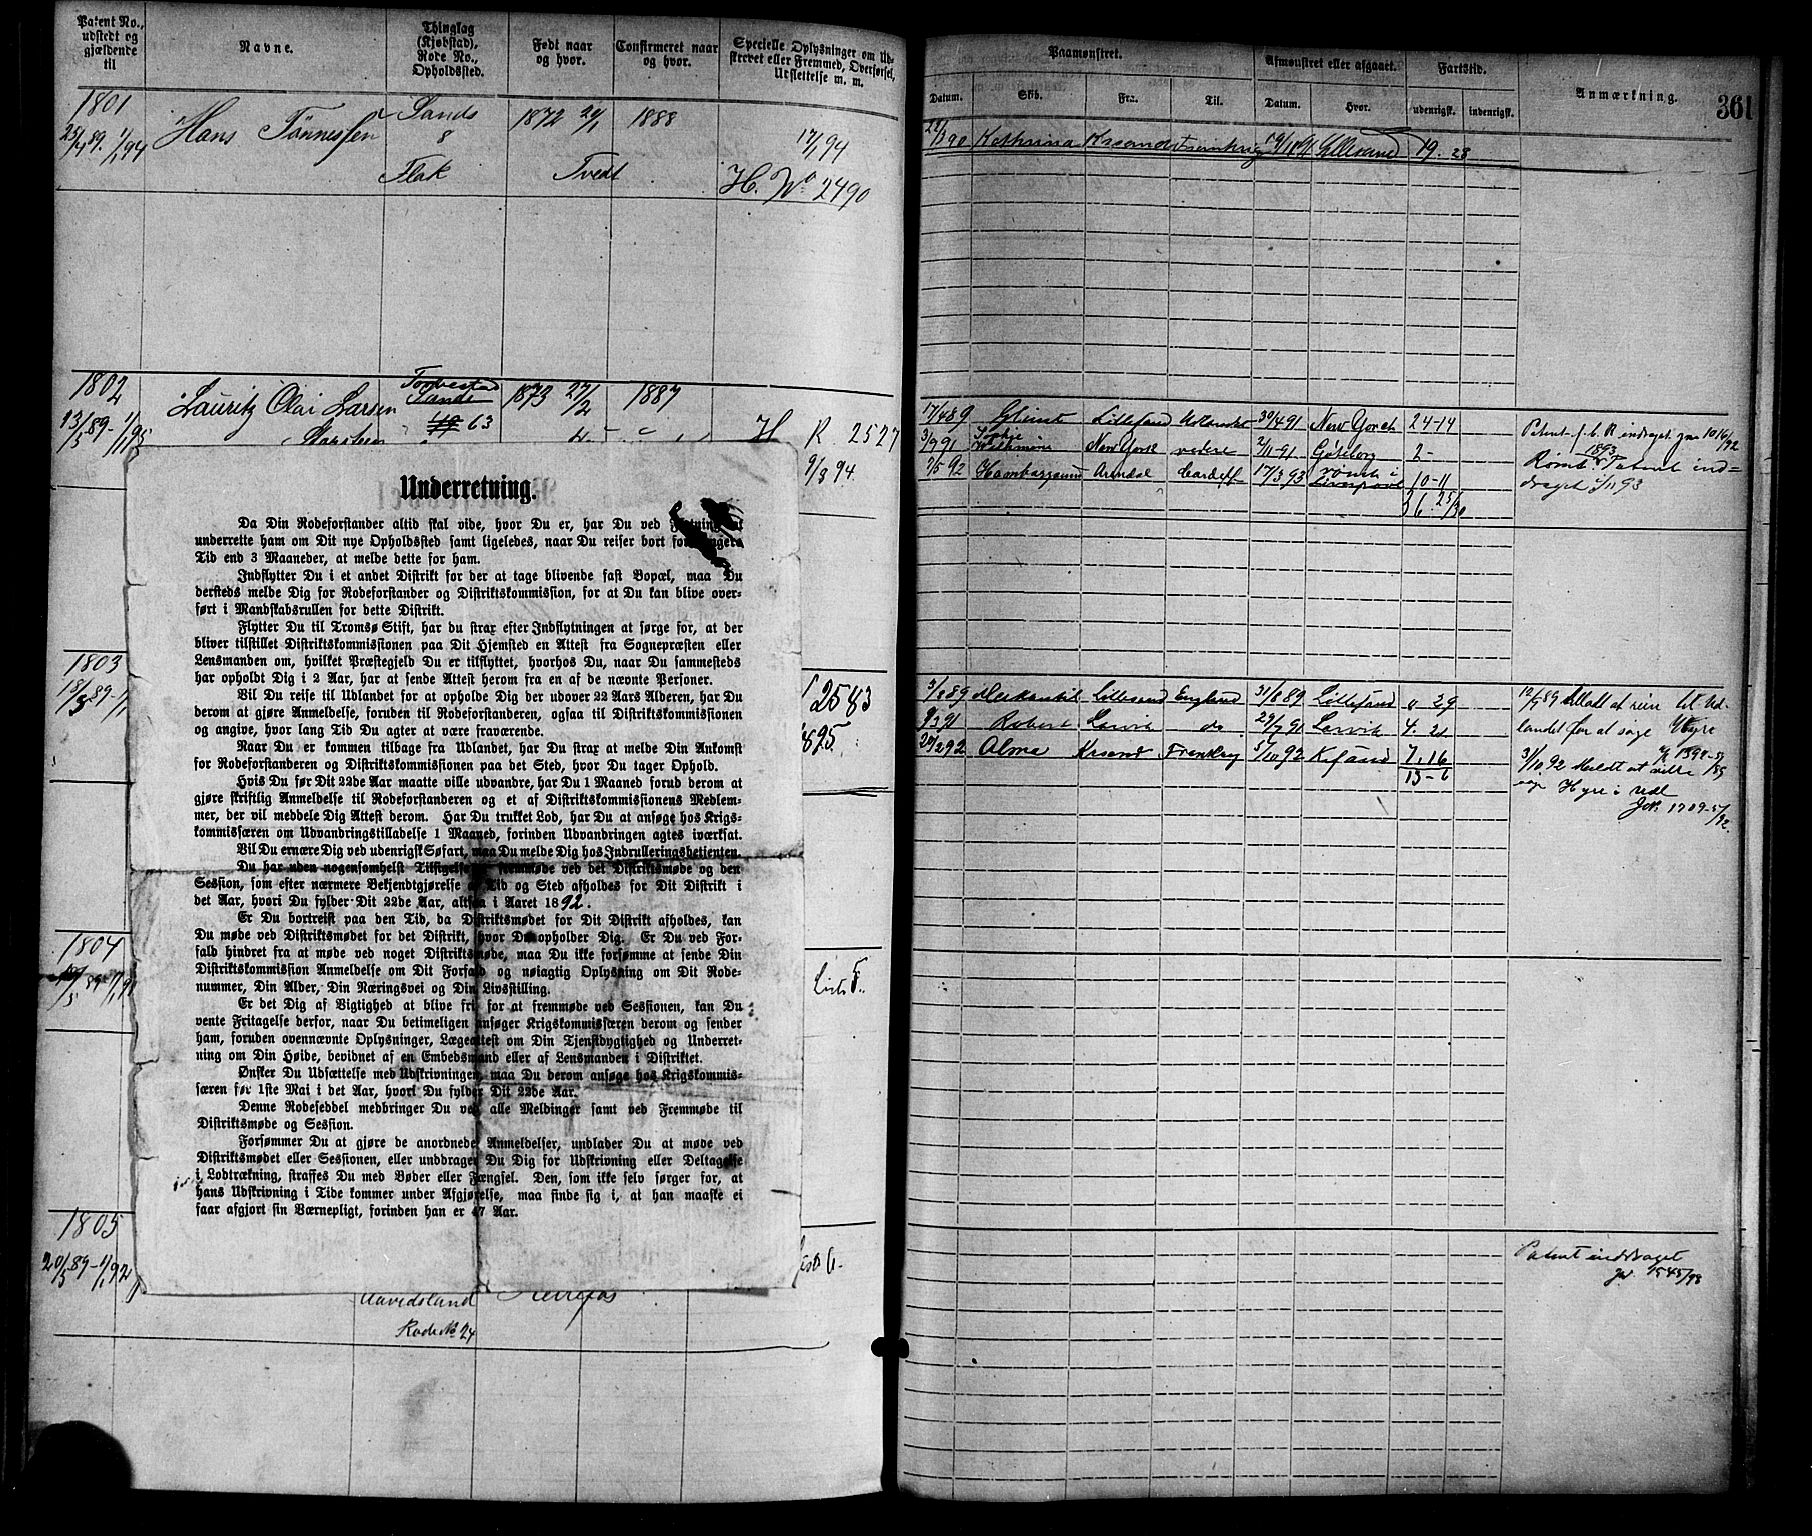 Patent No.,
udstedt og
gjældende
til
Navne.
Thinglag
(Kjøbstad),
Rode No.,
Opholdssted.
Født naar
og hvor.
Confirmeret naar
og hvor.
Specielle Oplysninger om Ud-
skrevet eller Fremmed, Overførsel,
Udslettelse m. m.
1801
25/4 89. 1/1 94
Hans Tønnessen
Sands
8
Flak
1872
1888
Tvedt
17/1 94
H. No 2490
1802
13/5 89- 1/1 95
Lauritz Olai Larsen
Sands
63
1873 27/2
1887
H R 2527
9/3 94.
Underretning.
Da Din Rodeforstander altid skal vide, hvor Du er, har Du ved Flytning at
underrette ham om Dit nye Opholdssted samt ligeledes, naar Du reiser bort for længere
Tid end 3 Maaneder, at melde dette for ham.
Indflytter Du i et andet Distrikt for der at tage blivende fast Bopæl, maa Du
dersteds melde Dig for Rodeforstander og Distriktskommission, for at Du kan blive over-
ført i Mandskabsrullen for dette Distrikt.
Flytter Du til Tromsø Stift, har du strax efter Indflytningen at sørge for, at der
bliver tilstillet Distriktskommissionen paa Dit Hjemsted en Attest fra Sognepræsten eller
Lensmanden om, hvilket Præstegjeld Du er tilflyttet, hvorhos Du, naar Du sammesteds
har opholdt Dig i 2 Aar, har at sende Attest herom fra en af de nævnte Personer.
Vil Du reise til Udlandet for at opholde Dig der udover 22 Aars Alderen, har Du
derom at gjøre Anmeldelse, foruden til Rodeforstanderen, ogsaa til Distriktskommissionen
og angive, hvor lang Tid Du agter at være fraværende.
Naar Du er kommen tilbage fra Udlandet, har Du strax at melde Din Ankomst
for Rodeforstanderen og Distriktskommissionen paa det Sted, hvor Du tager Ophold.
Hvis Du før Dit 22de Aar maatte ville udvandre, har Du 1 Maaned forud derom at
gjøre skriftlig Anmeldelse til Rodeforstanderen og et af Distriktskommissionens Medlem-
mer, der vil meddele Dig Attest derom. Har Du trukket Lod, har Du at ansøge hos Krigs-
kommissæren om Udvandringstilladelse 1 Maaned, forinden Udvandringen agtes iværksat.
Vil Du ernære Dig ved udenrigsk Søfart, maa Du melde Dig hos Indrulleringsbetjenten.
Du har uden nogensomhelst Tilsigelse at fremmøde ved det Distriktsmøde og den
Session, som efter nærmere Bekjendtgjørelse af Tid og Sted afholdes for Dit Distrikt i
det Aar, hvori Du fylder Dit 22de Aar, altsaa i Aaret 1892.
Er Du bortreist paa den Tid, da Distriktsmødet for Dit Distrikt afholdes, kan
Du møde ved Distriktsmødet for det Distrikt, hvor Du opholder Dig. Er Du ved For-
fald hindret fra at møde ved noget Distriktsmøde, maa Du ikke forsømme at sende Din
Distriktskommission Anmeldelse om Dit Forfald og nøiagtig Oplysning om Dit Rode-
nummer, Din Alder, Din Næringsvei og Din Livsstilling.
Er det Dig af Vigtighed at blive fri for at fremmøde ved Sessionen, kan Du
vente Fritagelse derfor, naar Du betimeligen ansøger Krigskommissæren derom og sender
ham, foruden ovennævnte Oplysninger, Lægeattest om Din Tjenstdygtighed og Underret-
ning om Din Høide, bevidnet af en Embedsmand eller af Lensmanden i Distriktet.
Ønsker Du Udsættelse med Udskrivningen, maa Du derom ansøge hos Krigskommis-
særen før 1ste Mai i det Aar, hvori Du fylder Dit 22de Aar.
Denne Rodeseddel medbringer Du ved alle Meldinger samt ved Fremmøde til
Distriktsmøde og Session.
Forsømmer Du at gjøre de anordnede Anmeldelser, undlader Du at møde ved
Distriktsmødet eller Sessionen, eller unddrager Du Dig for Udskrivning eller Deltagelse
i Lodtrækning, straffes Du med Bøder eller Fængsel. Den, som ikke selv sørger for, at
hans Udskrivning i Tide kommer under Afgjørelse, maa finde sig i, at han maaske ei
faar afgjort sin Værnepligt, forinden han er 47 Aar.
1803
18/3 89- 1/1
2583
1895.
1804
1805
20/5 89- 1/1 92
Aavedsland
Rode No 24
Paamønstret.
Afmønstret eller afgaaet.
Fartstid.
Anmærkning.
361
Datum.
Skib.
Fra:
Til.
Datum.
Hvor.
udenrigsk.
indenrigsk.
Kathrina Krsand Lillesand 19. 28
17/4 89 Lillesand 30/4 91 New York 24-14
Patent f. b. R inddraget 1016/92
3/9 91 New York 2/11-91 Gøteborg 2-
7/5 92 Arendal Cardiff 17/3 93 rømt i Liverpool 10-11
Rømt. Patent ind-
draget 93
36 25/30
89 Lillesand England 31/8 89 Lillesand 29
Robert Larvik do 29/7 91 Larvik 4. 21
92 Alma Krsand 5/10 92 7. 16
13-6
landet for at søge Hyre
31/10 92 Meldt at ville
Hyre i Udl
Jr. 1709-5/92.
Patent inddraget
Jr. 1545/93